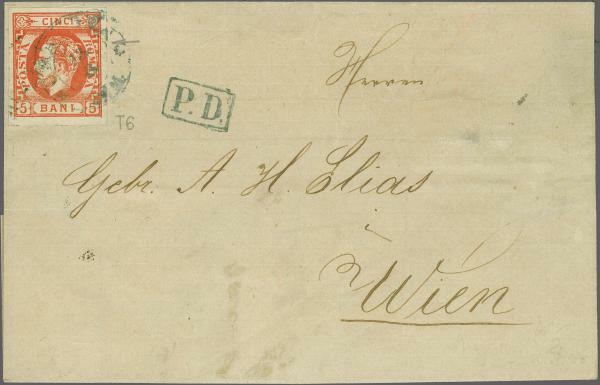 CINCI
POSTA ROMANA
5 BANI 5
P.D.
T6
Herren
Gebr. A. H. Elias
Wien